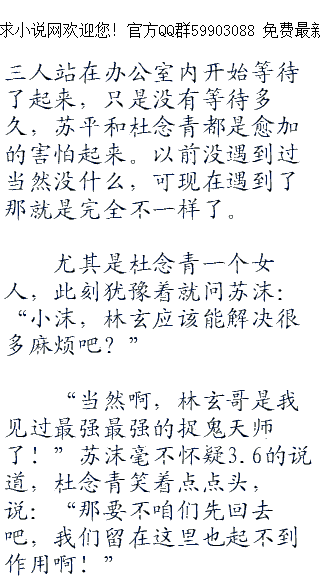 求小说网欢迎您！官方QQ群59903088 免费最新
三人站在办公室内开始等待
了起来，只是没有等待多
久，苏平和杜念青都是愈加
的害怕起来。以前没遇到过
当然没什么，可现在遇到了
那就是完全不一样了。
尤其是杜念青一个女
人，此刻犹豫着就问苏沫：
“小沫，林玄应该能解决很
多麻烦吧？”
“当然啊，林玄哥是我
见过最强最强的捉鬼天师
了！”苏沫毫不怀疑3.6的说
道，杜念青笑着点点头，
说：“那要不咱们先回去
吧，我们留在这里也起不到
作用啊！”